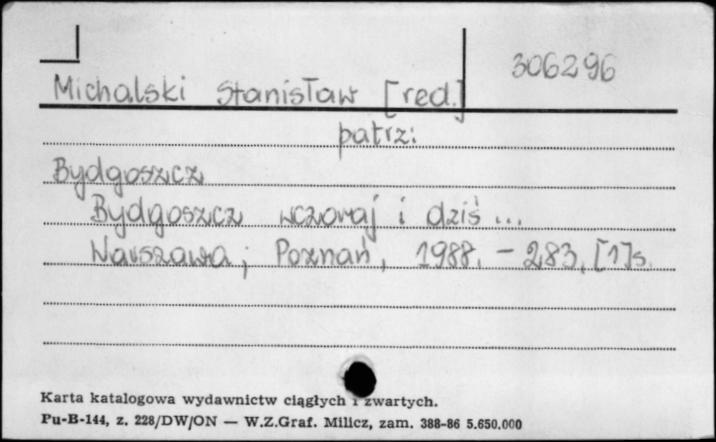 306296
Michalski Stanisław [red.]
patrz:
Bydgoszcz
Bydgoszcz wczoraj i dziś ...
Warszawa; Poznań, 1988. - 283, [1]s.
Karta katalogowa wydawnictw ciągłych i zwartych.
Pu-B-144, z. 228/DW/ON — W.Z.Graf. Milicz, zam. 388-86 5.650.000